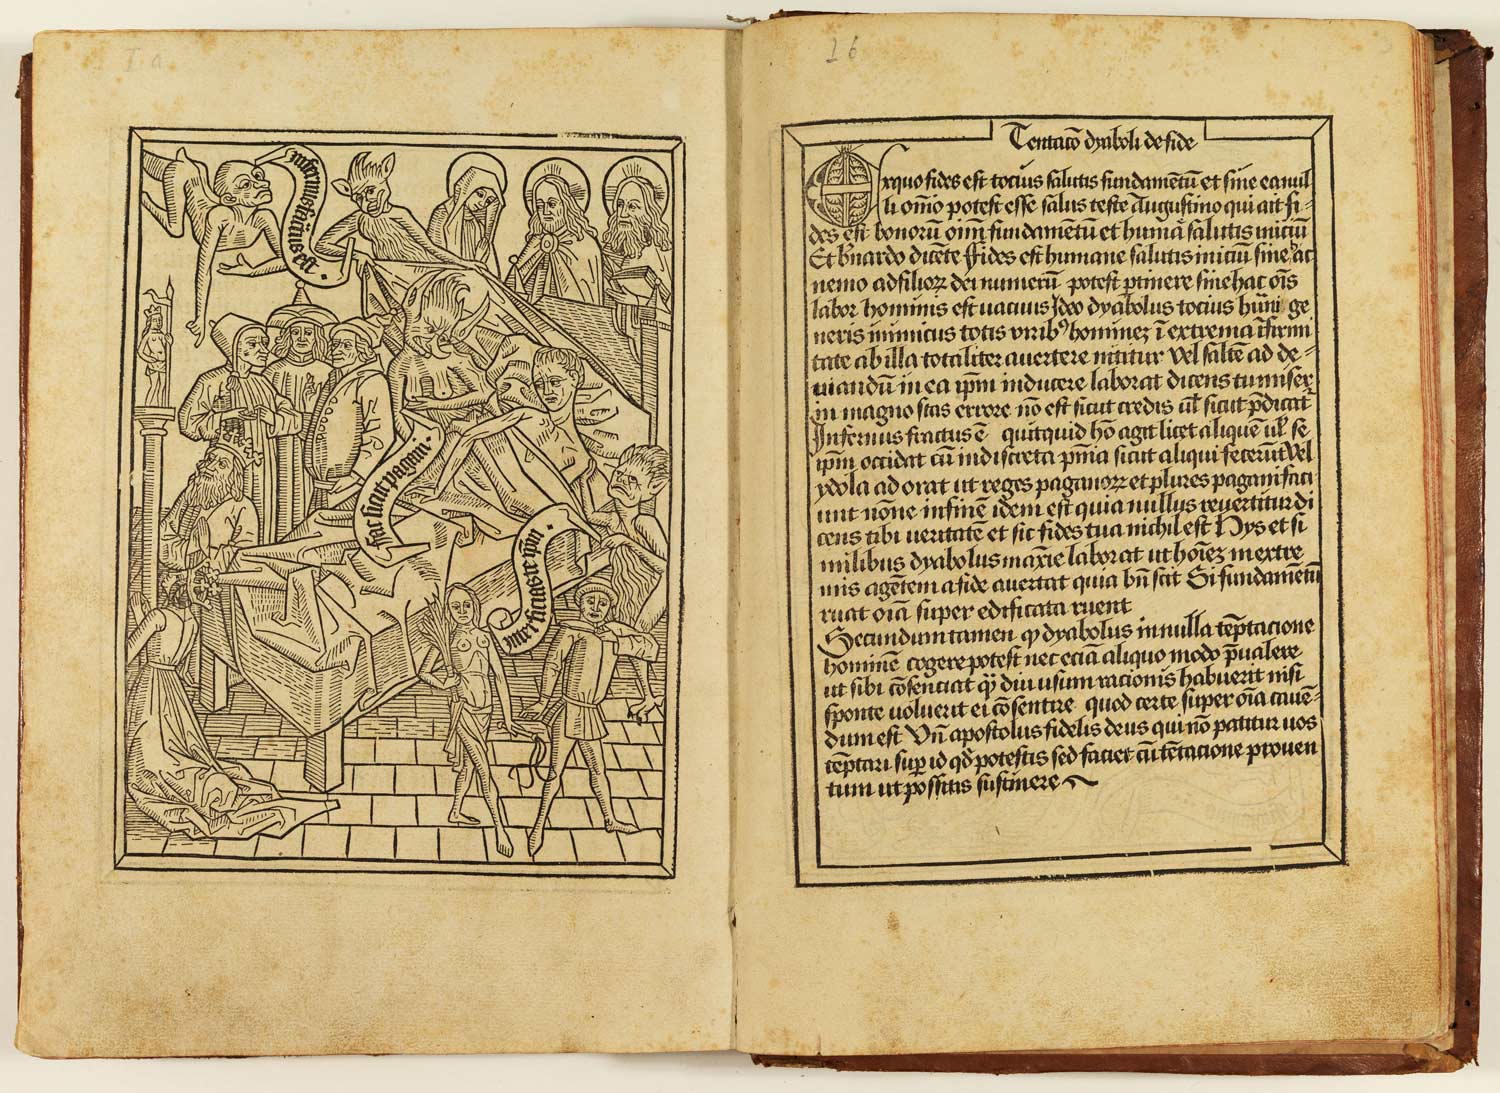 I a
infernus fractus est.
fac sicut pagani.
interficias te ipm̄.
16
Tentacō dyaboli de fide
Exquo fides est tocius salutis fundamētū et sine ea nul
li om̄o potest esse salus teste Augustino qui ait fi-
des est bonorū om̄ fundamētū et humā salutis iniciū
Et b̄nardo dicēte Fides est humane salutis iniciū sine hac
nemo ad filioꝝ dei numerū potest ꝑtinere sine hac om̄s
labor hominis est uacuus Ideo dyabolus tocius hūni ge
neris inimicus totis uiribꝰ hominez ī extrema īfirmi
tate ab illa totaliter auertere nititur vel saltē ad de-
uiandū in ea ip̄m inducere laborat dicens tu miser
in magno stas errore nō est sicut credis ul̄ sicut p̄dicat̄
Infernus fractus ē quitquid hō agit licet aliquē ul̄ se
ip̄m occidat cū indiscreta pn̄ia sicut aliqui fecerūt vel
ydola adorat ut reges paganoꝝ et plures pagani faci
unt nōne in finē idem est quia nullus reuertitur di
cens tibi ueritatē et sic fides tua nichil est Hys et si
milibus dyabolus maxīe laborat ut hoīez in extre
mis agētem a fide auertat quia bn̄ scit Si fundamētū
ruat oīa super edificata ruent
Secundum tamen ꝙ dyabolus in nulla tēptacione
hominē cogere potest nec eciā aliquo modo p̄ualere
ut sibi cōsenciat ꝙ̄ diu usum racionis habuerit nisi
sponte uoluerit ei cōsentire quod certe super oīa cauē-
dum est Vn̄ apostolus fidelis deus qui nō patitur uos
tēptari sup̄ id qd̄ potestis sed faciet cū tētacione prouen
tum ut possitis sustinere